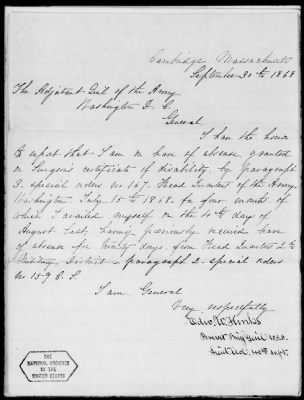 Cambridge Massachusetts
September 30th 1868
The Adjutant Genl of the Army
Washington D. C.
General
I have the honor
to report that I am on leave of absence, granted
on Surgeon's certificate of disability, by paragraph
3. special orders No 167. Head Quarters of the Army,
Washington July 15th 1868. for four months of
which I availed myself on the 4th day of
August last, having previously received leave
of absence for twenty days, from Head Quarters 2nd
Military District - paragraph 2 - special orders
No 159 C. S.
I am General
Very respectfully
Edw. W. Hinks
Brevet Brig Genl U.S.A.
Lieut Col. 40th Inft.
THE
NATIONAL ARCHIVES
OF THE
UNITED STATES